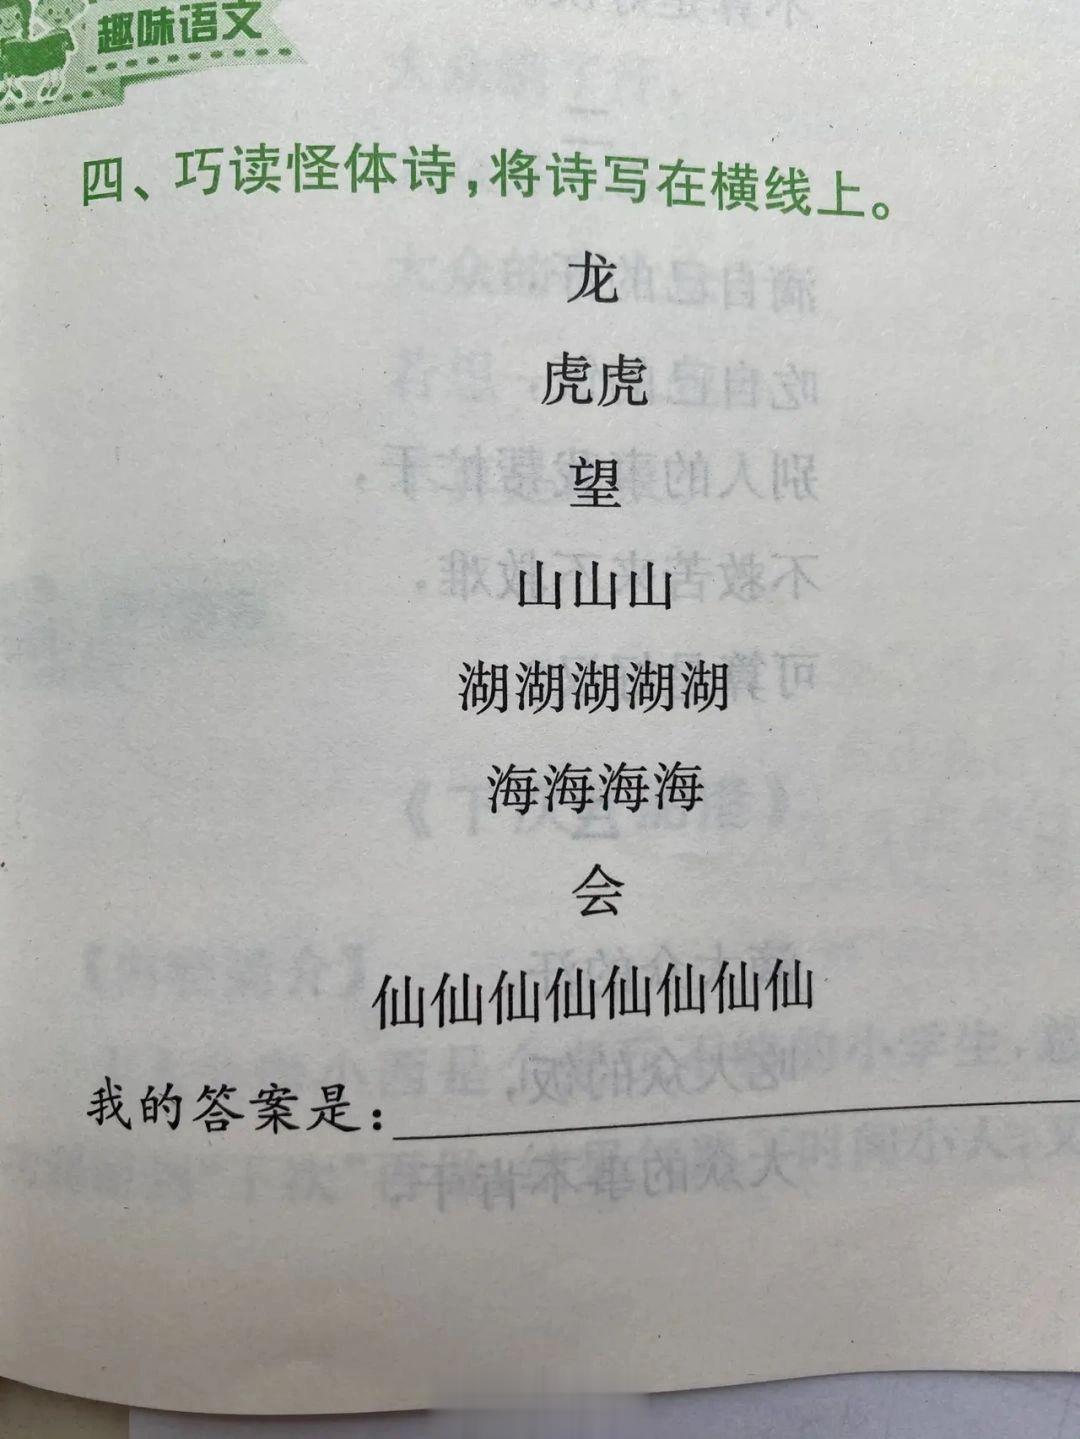 趣味语文
四、巧读怪体诗,将诗写在横线上。
龙
虎虎
望
山山山
湖湖湖湖湖
海海海海
会
仙仙仙仙仙仙仙仙
我的答案是: